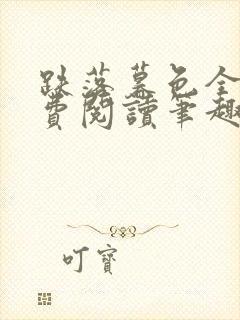 跌落暮色全
費閱讀筆趣
叮寶